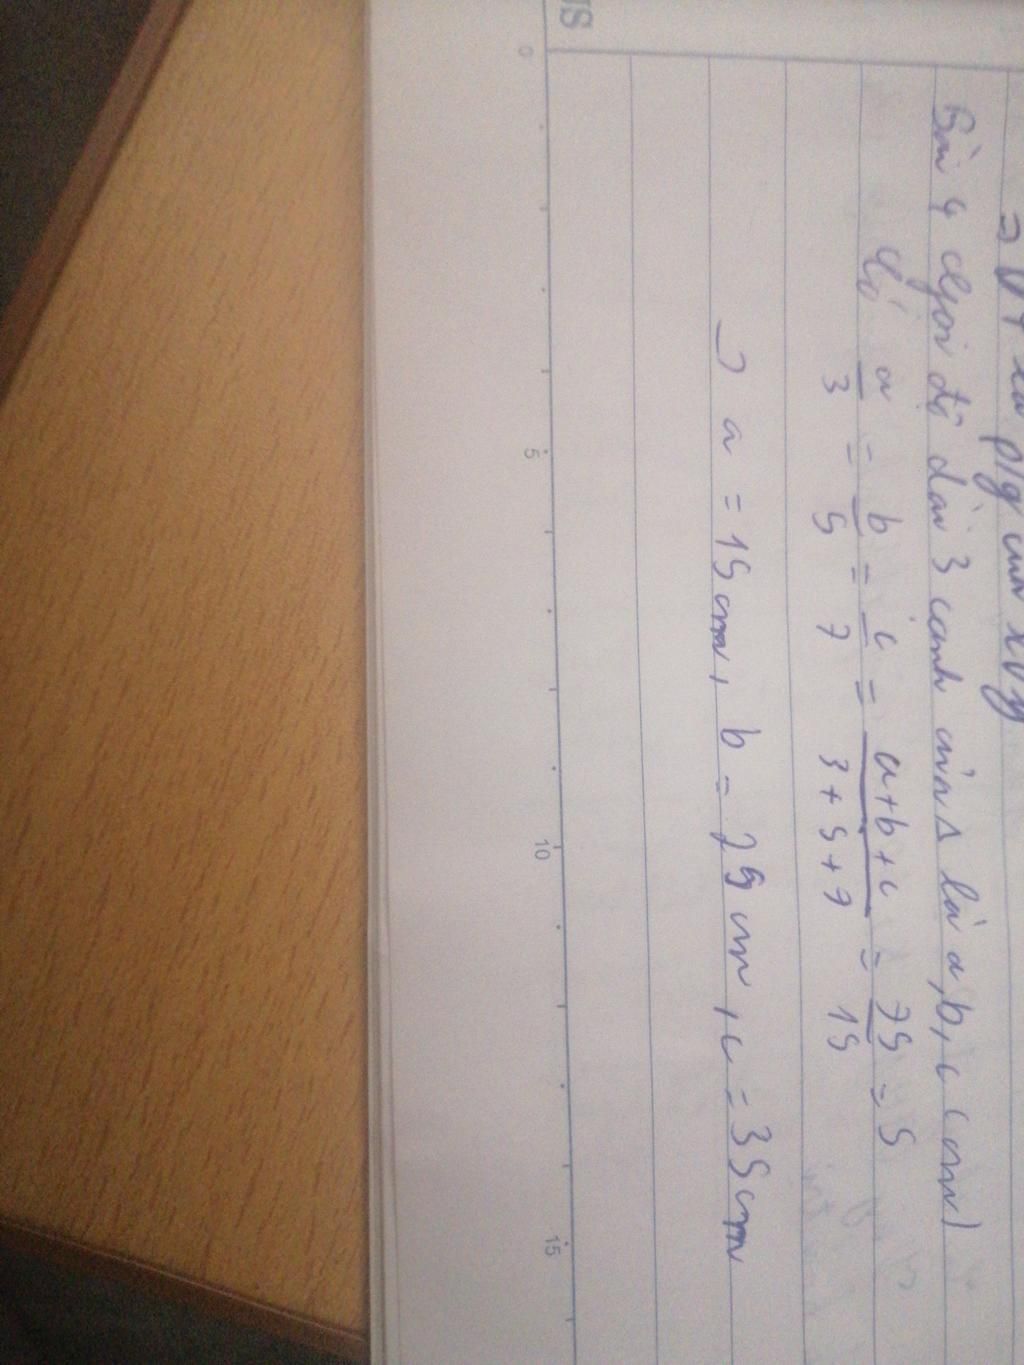 ⇒ Oy là p/g của xOy
Bài 4 Gọi độ dài 3 cạnh của Δ là a, b, c (cm)
Có a/3 = b/5 = c/7 = a+b+c/3+5+7 = 75/15 = 5
⇒ a = 15cm, b = 25cm, c = 35cm
0 5 10 15